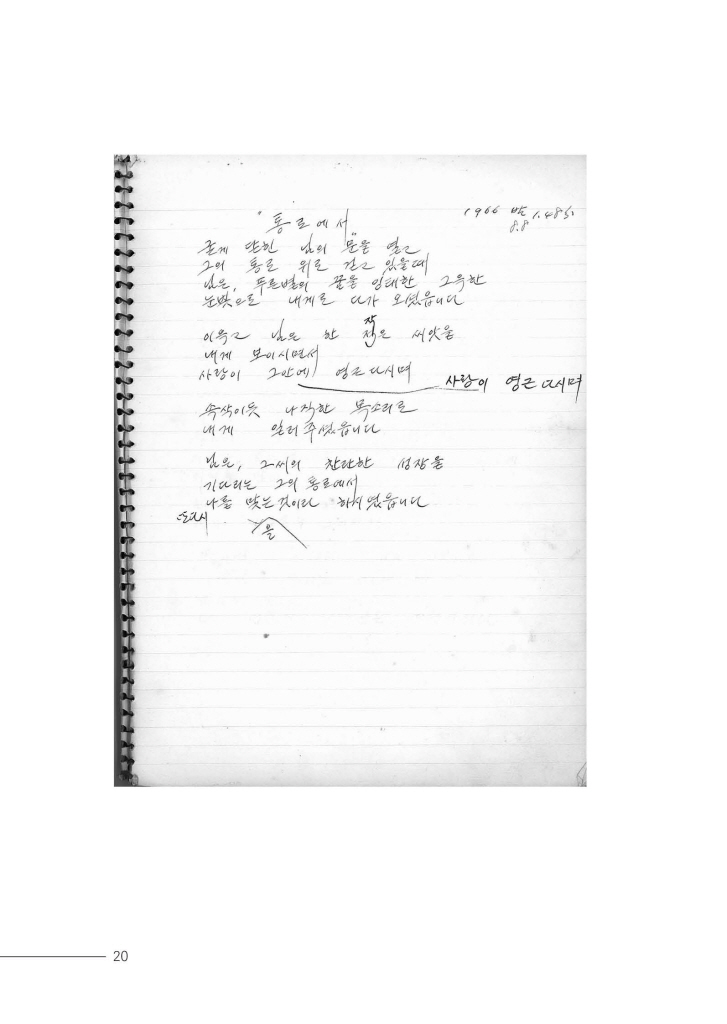 "통로에서"
1966 밤 1.48분
8.8
굳게 닫힌 님의 문을 열고
그의 통로 위로 걷고 있을때
님은, 푸른별의 꿈을 잉태한 그윽한
눈빛으로 내게로 다가 오셨읍니다
이윽고 님은 한 적은 씨앗을
작
내게 보이시면서
사랑이 그안에 영근다시며
사랑이 영근 다시며
속삭이듯 나직한 목소리로
내게 일러주셨읍니다
님은, 그씨의 찬란한 성장을
기다리는 그의 통로에서
나를 맞는것이라 하시였읍니다
또다시
을
20